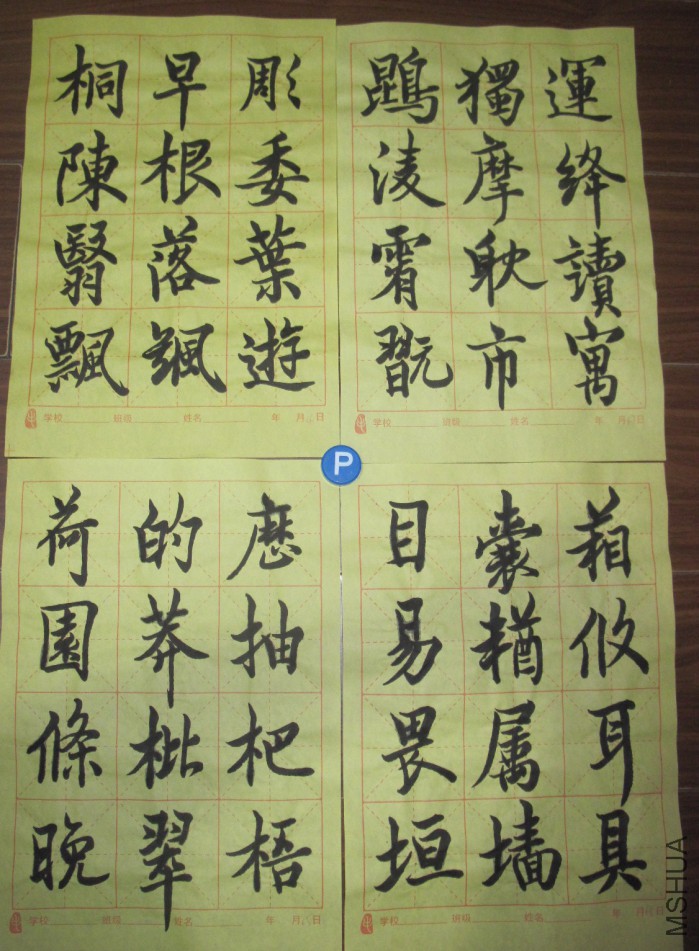 桐早彫
陳根委
翳落葉
飄颻遊
学校 班级 姓名 年 月 日
鵾獨運
淩摩絳
霄躭讀
翫市寓
学校 班级 姓名 年 月 日
P
荷的歷
園莽抽
條枇杷
晚翠梧
学校 班级 姓名 年 月 日
目囊箱
易輶攸
畏属耳
垣墙具
学校 班级 姓名 年 月 日
MSHUA